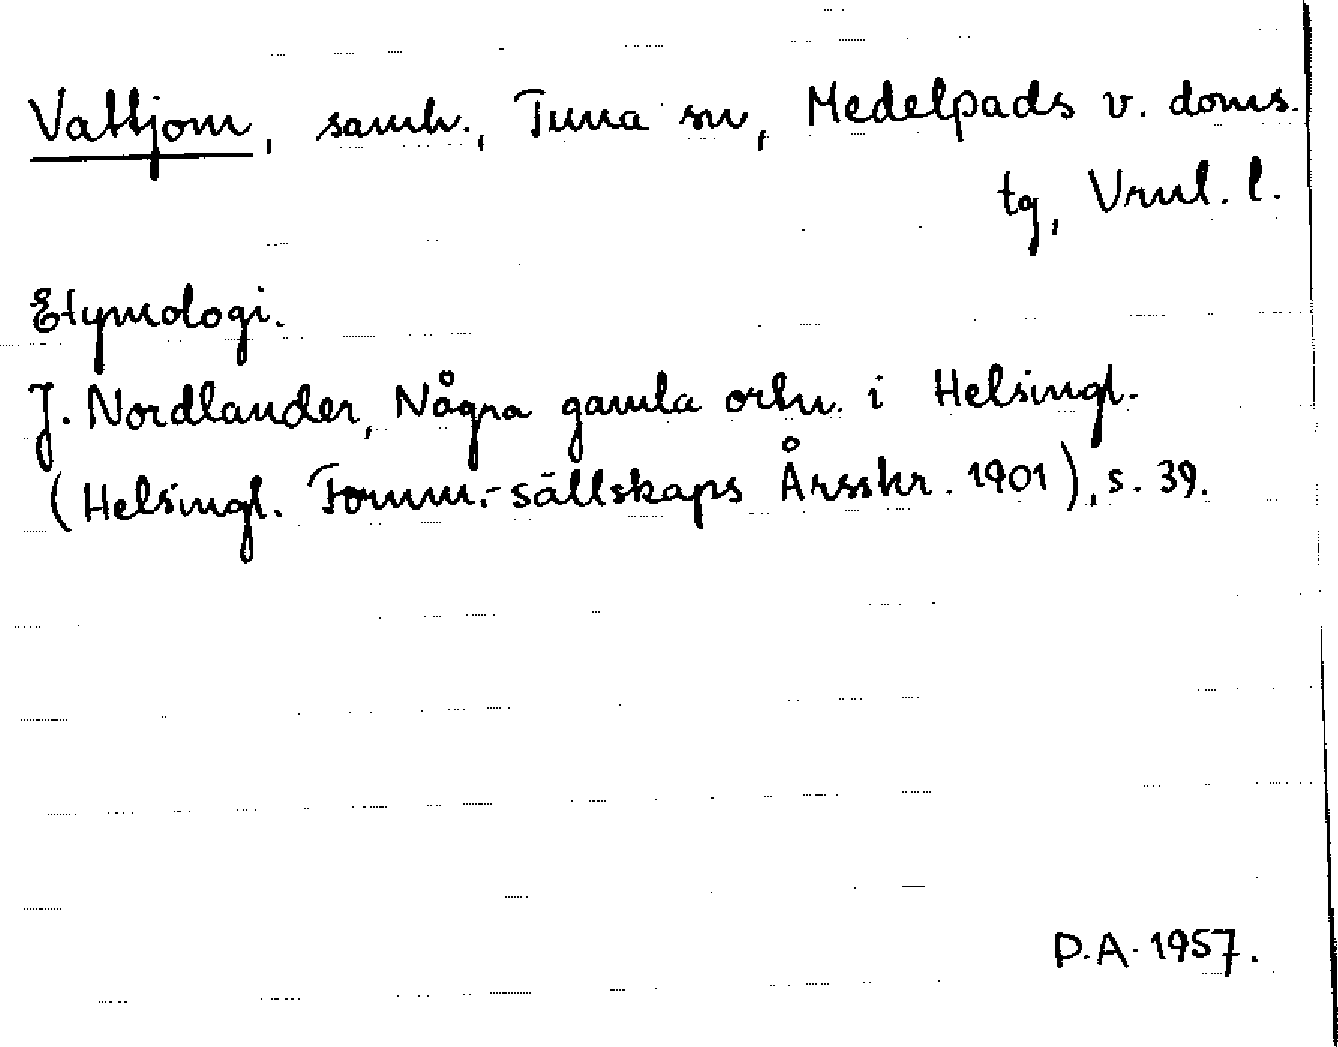 Vattjom, samh., Tuna sn, Medelpads v. doms.
tg, Vrnl. l.
Etymologi.
J. Nordlander, Några gamla ortn. i Helsingl.
(Helsingl. Fornm.-sällskaps Årsskr. 1901), s. 39.
D.A. 1957.